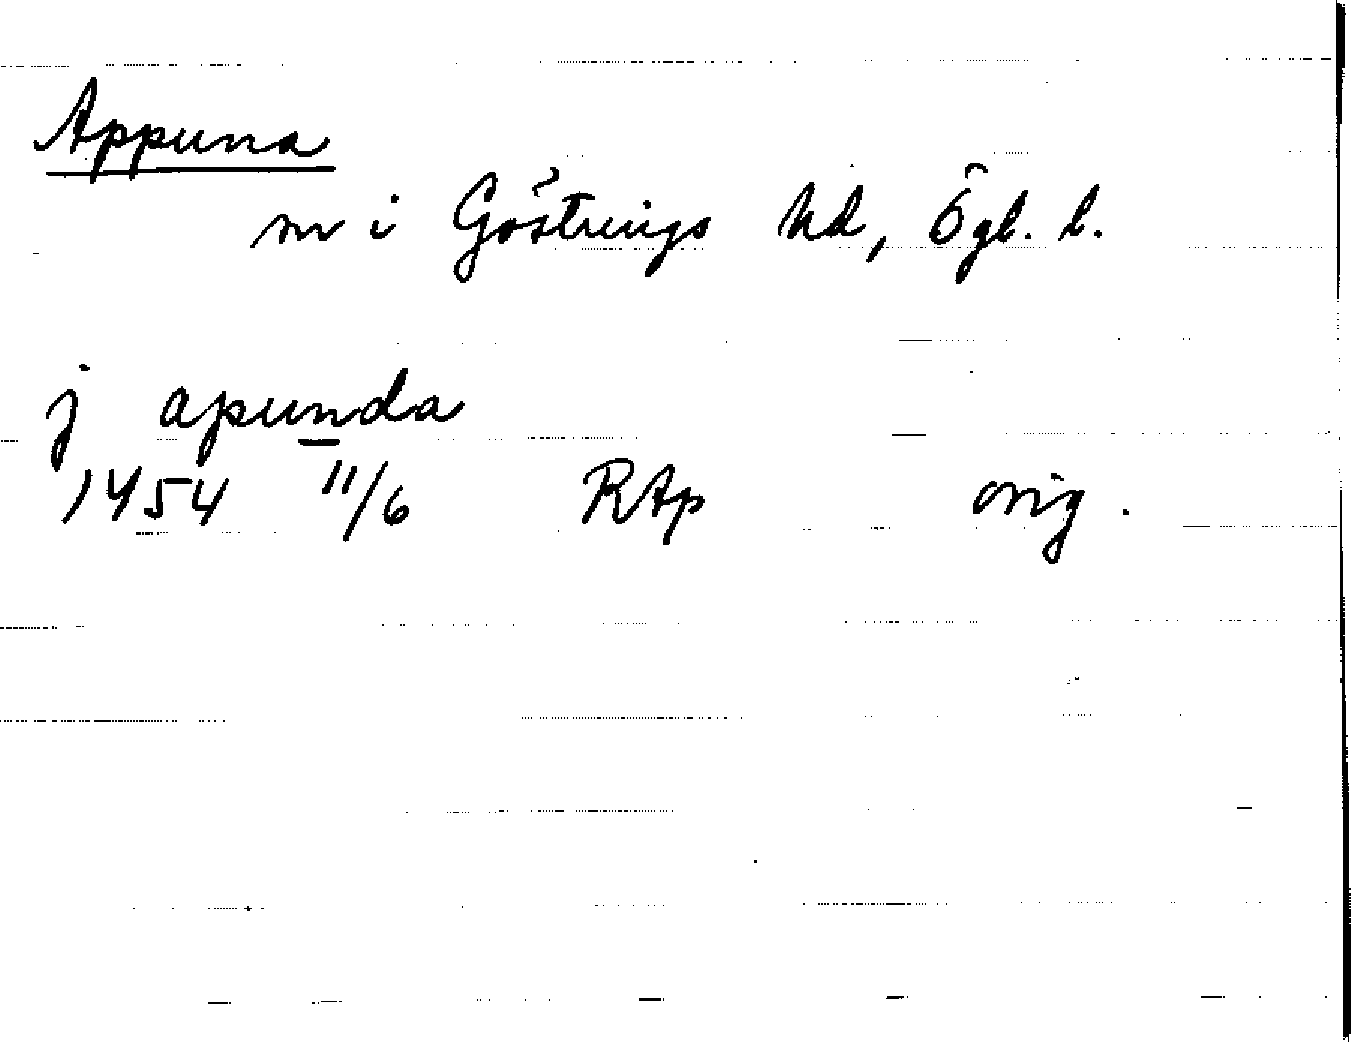 Appuna
sn i Göstrings hd, Ögl. l.
j apunda
1454 11/6 RAp orig.